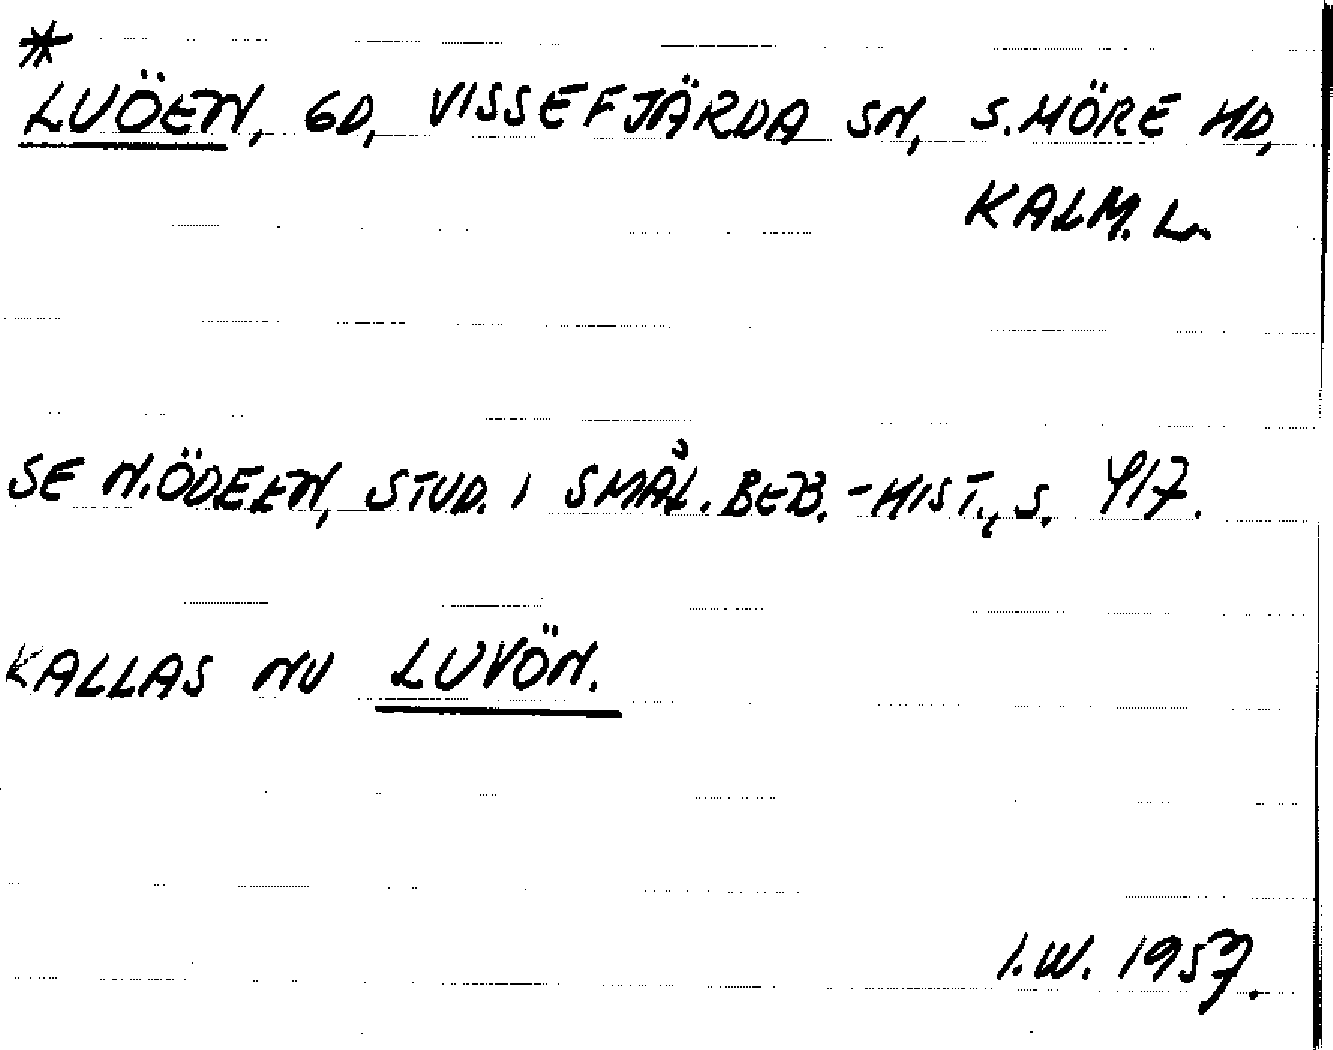 *
LUÖEN, GD, VISSEFJÄRDA SN, S. MÖRE HD,
KALM. L.
SE N. ÖDEEN, STUD. I SMÅL. BEB.-HIST., S. 417.
KALLAS NU LUVÖN.
I.W. 1957.